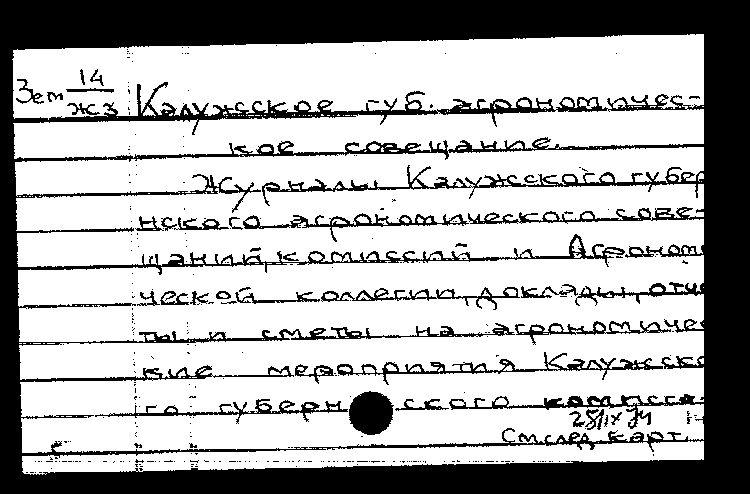 Зем 14/жз Калужское губ. агрономичес-
кое совещание.
Журналы Калужского губер
нского агрономического сове-
щаний, комиссий и Агроном
ческой коллегии, доклады, отче
ты и сметы на агрономичес
кие мероприятия Калужско
го губернского комисса-
28/IX 74
См. след. карт.